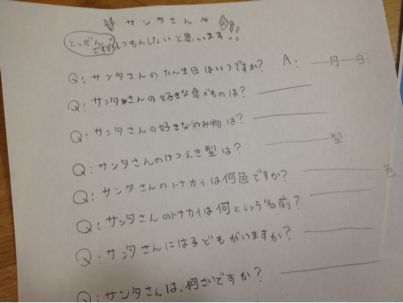 サンタさんへ
とつぜんですがしつもんしたいと思います!!
Q:サンタさんのたん生日はいつですか? A:__月__日
Q:サンタさんの好きな食べものは?
Q:サンタさんの好きなのみ物は?
Q:サンタさんのけつえき型は? 型
Q:サンタさんのトナカイは何色ですか? 色
Q:サンタさんのトナカイは何という名前?
Q:サンタさんには子どもがいますか?
Q:サンタさんは、何さいですか?